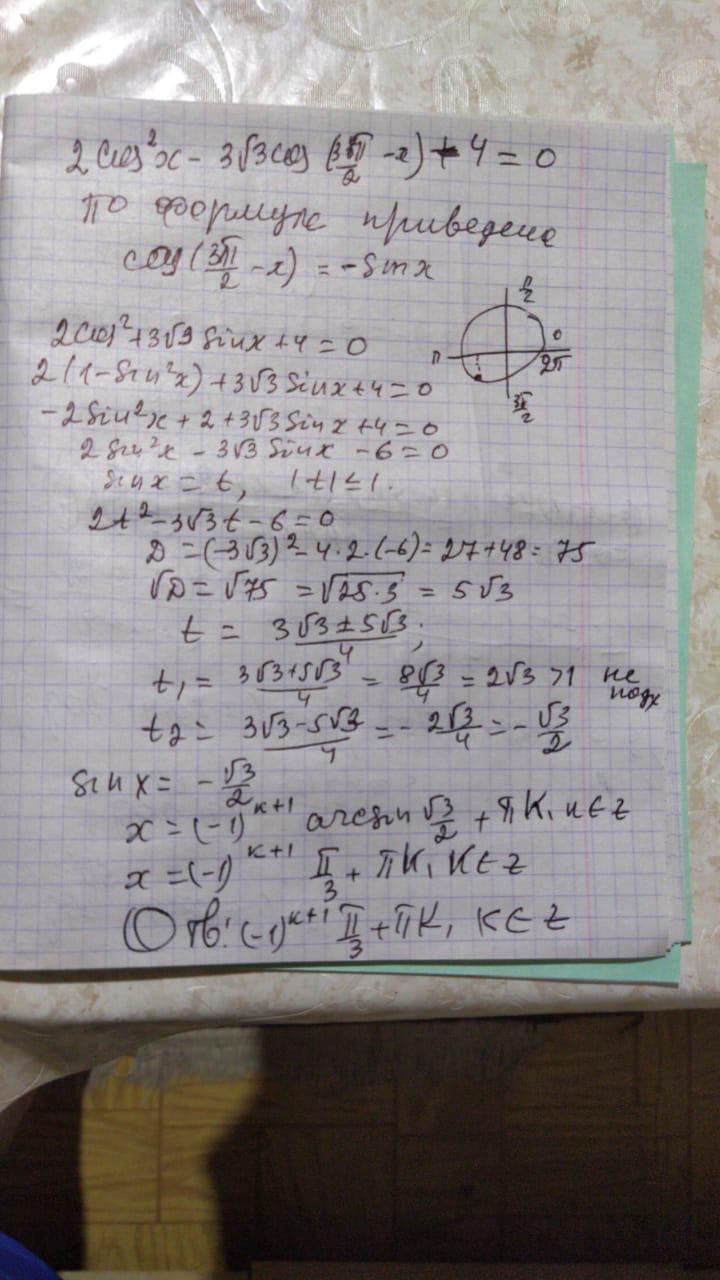 2cos²x - 3√3cos(3π/2 - x) + 4 = 0
по формуле приведене
cos(3π/2 - x) = -sinx
π/2
0
π
2π
3π/2
2cos² + 3√3 sinx + 4 = 0
2(1 - sin²x) + 3√3 sinx + 4 = 0
-2sin²x + 2 + 3√3 sinx + 4 = 0
2sin²x - 3√3 sinx - 6 = 0
sinx = t, |t| ≤ 1.
2t² - 3√3t - 6 = 0
D = (-3√3)² - 4·2·(-6) = 27 + 48 = 75
√D = √75 = √25·3 = 5√3
t = (3√3 ± 5√3)/4;
t₁ = (3√3 + 5√3)/4 = 8√3/4 = 2√3 > 1 не подх
t₂ = (3√3 - 5√3)/4 = -2√3/4 = -√3/2
sin x = -√3/2
x = (-1)^(k+1) arcsin √3/2 + πk, k ∈ z
x = (-1)^(k+1) π/3 + πk, k ∈ z
Отв: (-1)^(k+1) π/3 + πk, k ∈ z